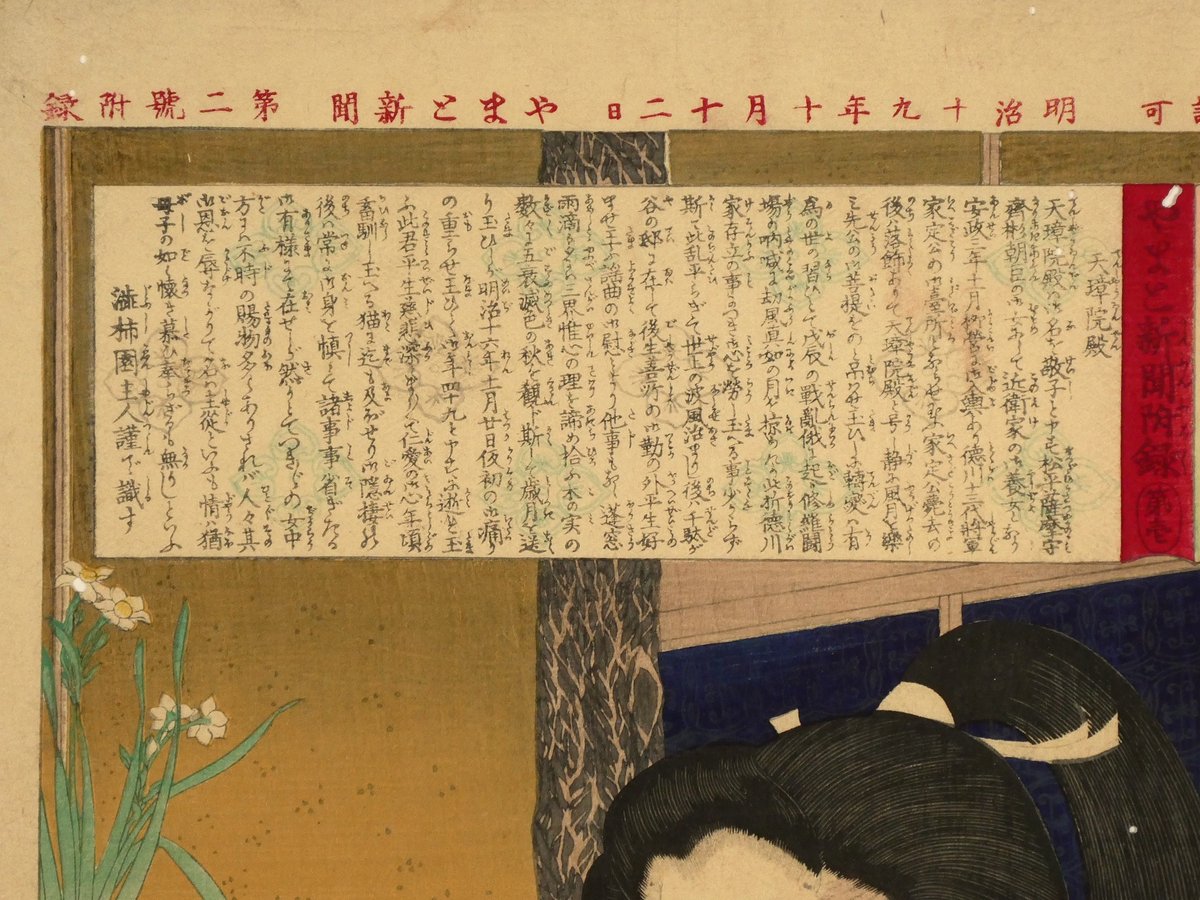 可 明治十九年十月十二日 やまと新聞 第二號附録
やまと新聞附録 第壱
天璋院殿
天璋院殿ハ御名を敬子と申し松平薩摩守
齊彬朝臣の御女にして近衛家の御養女となり
安政三年十一月柳營に御入輿あり徳川十三代將軍
家定公の御臺所とならせ玉ふ家定公薨去の
後御落飾ありて天璋院殿と号し静に風月を樂
み先公の御菩提をのみ吊はせ玉ひしに轉變ハ有
為の世の習ひにて戊辰の戰亂俄に起り修羅鬪
場の吶喊に劫風真如の月を掠めたり此折徳川
家存立の事につき御心を勞し玉へる事少からず
斯て此乱平らぎて世上の波風治まりし後ハ千駄が
谷の邸に在して後生善源の御勤の外平生好
ませ玉ふ謡曲の御慰しより他事もなく蓬窓
雨滴を三界惟心の理を諦め拾ふ木の実の
数々に五衰滅色の秋を観ド斯して歳月を送
り玉ひしが明治十六年十一月廿日仮初の御痛り
の重らせ玉ひて御年四十九と申すに逝せ玉
ふ此君平生慈悲深くまして仁愛の御心年頃
畜馴し玉へる猫に迄も及ぼせり御隠棲の
後ハ常に御身を慎して諸事事省きたる
御有様にて在せしが然りとてつき〴〵の女中
方にハ不時の賜物多くありされバ人々其
御恩を辱ながりて名ハ主從といふも情ハ猶
母子の如く懐き慕ひ奉らざるも無りしといふ
澁柿園主人謹で識す